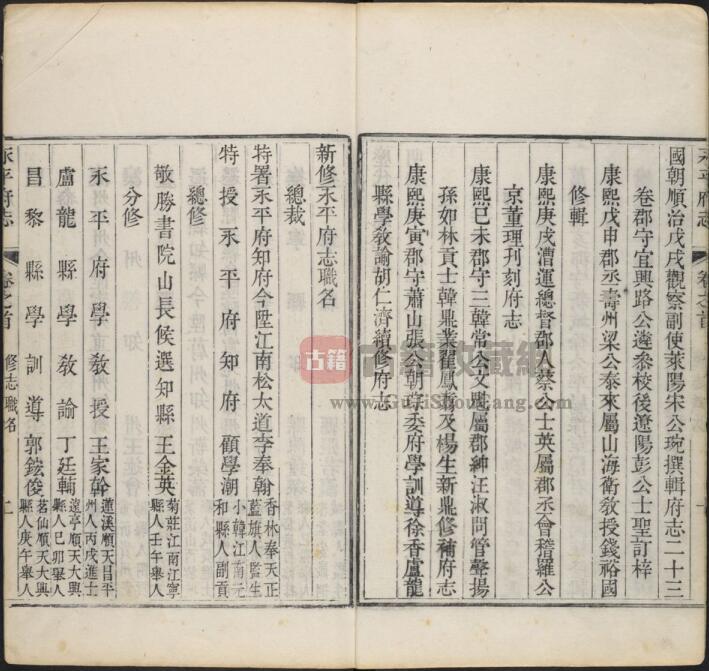 永平府志
卷之首
國朝順治戊戌觀察副使萊陽宋公琬撰輯府志二十三
卷郡守宜興路公遴叅校後遼陽彭公士聖訂梓
康熙戊申郡丞壽州梁公泰來屬山海衛敎授錢裕國
修輯
康熙庚戌漕運總督郡人蔡公士英屬郡丞會稽羅公
京董理刋刻府志
康熙己未郡守三韓常公文魁屬郡紳汪淑問管聲揚
孫如林貢士韓鼎業翟鳳翥及楊生新鼎修補府志
康熙庚寅郡守蕭山張公朝琮委府學訓導徐香盧龍
縣學敎諭胡仁濟續修府志
新修永平府志職名
總裁
特署永平府知府今陞江南松太道李奉翰
香林奉天正
藍旗人監生
特授永平府知府顧學潮
小韓江南元
和縣人副貢
總修
敬勝書院山長候選知縣王金英
菊莊江南江寧
縣人壬午舉人
分修
永平府學敎授王家幹
蓮溪順天昌平
州人丙戌進士
盧龍縣學敎諭丁廷輔
遠亭順天大興
縣人己卯舉人
昌黎縣學訓導郭鉉俊
茗仙順天大興
縣人庚午舉人
永平府志
卷之首
修志職名
古籍
www.GujiShouCang.com